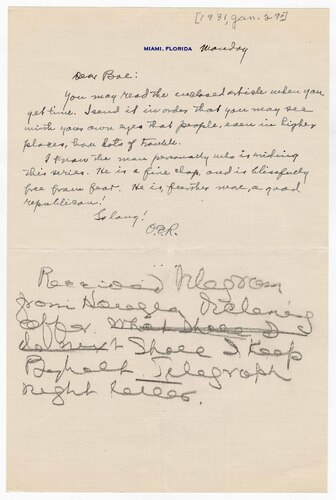 [1931, Jan. 29?]
MIAMI, FLORIDA Monday
Dear Bae:
You may read the enclosed article when you
get time. I send it in order that you may see
with your own eyes that people, even in higher
places, have lots of trouble.
I know the man personally who is writing
this series. He is a fine chap, and is blissfully
free from foot. He is, further more, a good
republican!
So long!
O.E.R.
Received Telegram
from Douglas Relaning
offer. What Shall I
do next Shall I Keep
Telegraph
night letter.